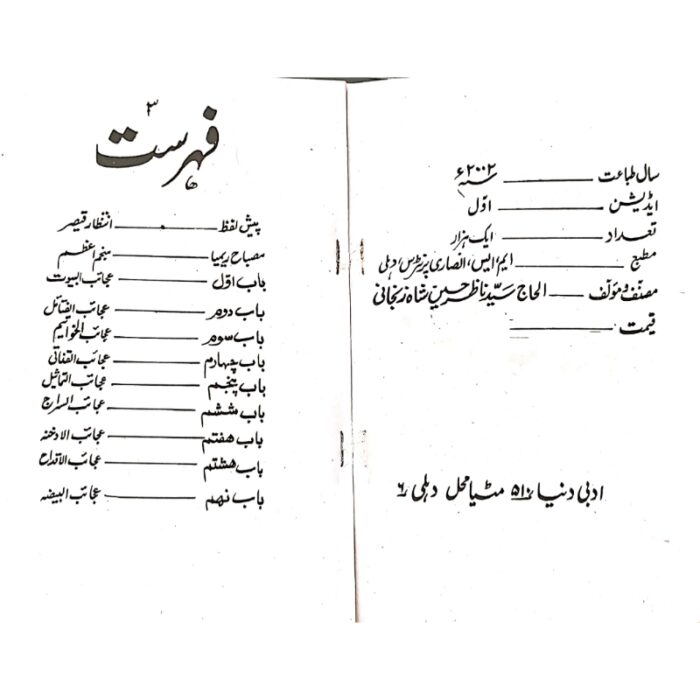 سال طباعت ــــــ ۲۰۰۲ء
ایڈیشن ــــــ اوّل
تعداد ــــــ ایک ہزار
مطبع ــــــ ایم ایس، انصاری پرنٹرس، دہلی
مصنف و مؤلف ــــــ الحاج سیّد ناظر حسین شاہ زنجانی
قیمت ــــــ
ادبی دنیا ۵۱۰ مٹیا محل دہلی ۶
۳
فہرست
پیش لفظ ــــــ انتظار قیصر
مصباح ریمیا ــــــ منجم اعظم
باب اوّل ــــــ عجائب البیوت
باب دوم ــــــ عجائب الفتائل
باب سوم ــــــ عجائب الخواتیم
باب چہارم ــــــ عجائب القنانی
باب پنجم ــــــ عجائب التماثیل
باب ششم ــــــ عجائب السراج
باب ہفتم ــــــ عجائب الادخنہ
باب ہشتم ــــــ عجائب الاقداح
باب نہم ــــــ عجائب البیضہ